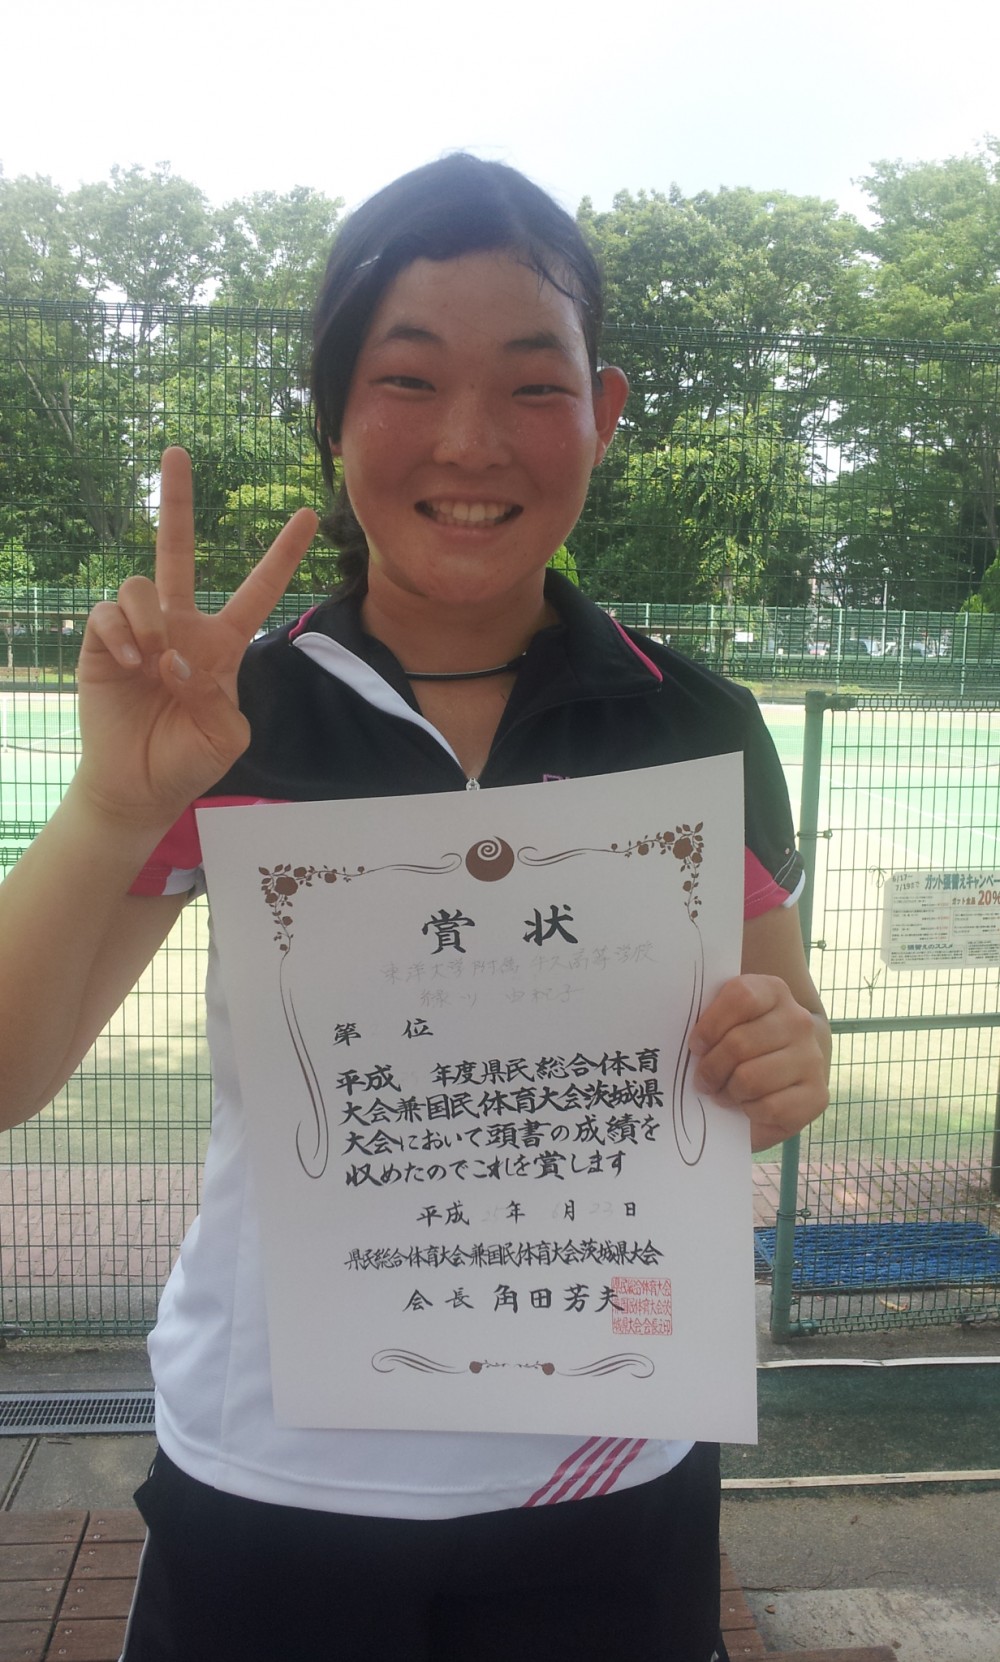 賞状
東洋大学附属牛久高等学校
第 位
平成 年度県民総合体育
大会兼国民体育大会茨城県
大会において頭書の成績を
収めたのでこれを賞します
平成25年6月23日
県民総合体育大会兼国民体育大会茨城県大会
会長 角田芳夫
県民総合体育大会
兼国民体育大会茨
城県大会会長之印
6/17〜
7/15まで
ガット張替えキャンペー
ガット全品 20%
張替えのススメ